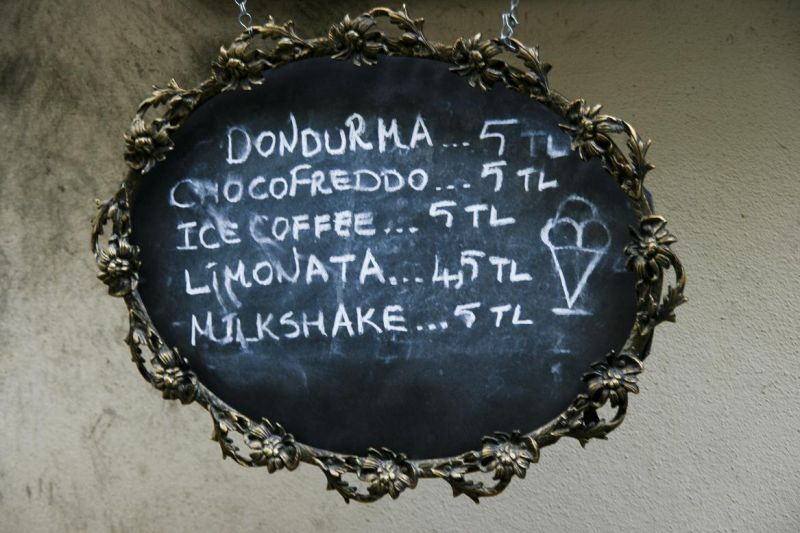 DONDURMA... 5 TL
CHOCOFREDDO... 5 TL
ICE COFFEE... 5 TL
LİMONATA... 4,5 TL
MILKSHAKE... 5 TL